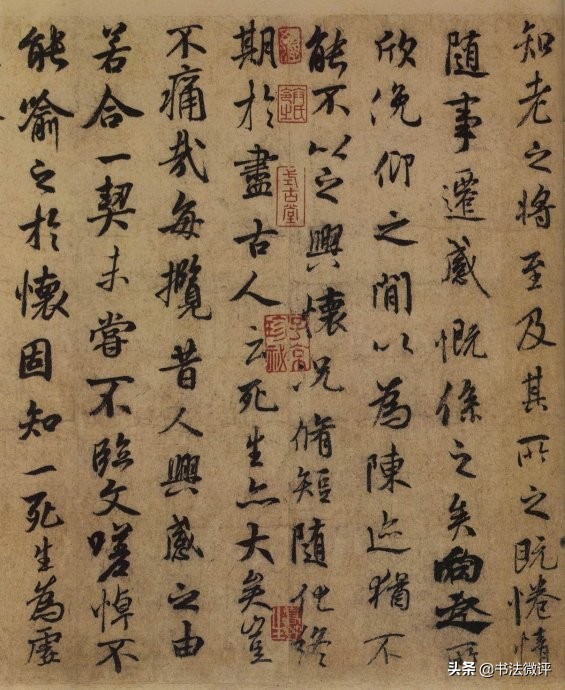 知老之将至及其所之既惓情
随事遷感慨係之矣向之所
欣俛仰之閒以為陳迹猶不
能不以之興懷況脩短随化終
期於盡古人云死生亦大矣豈
不痛哉每攬昔人興感之由
若合一契未嘗不臨文嗟悼不
能喻之於懷固知一死生為虛
式古堂
子京珍秘
头条 @书法微评